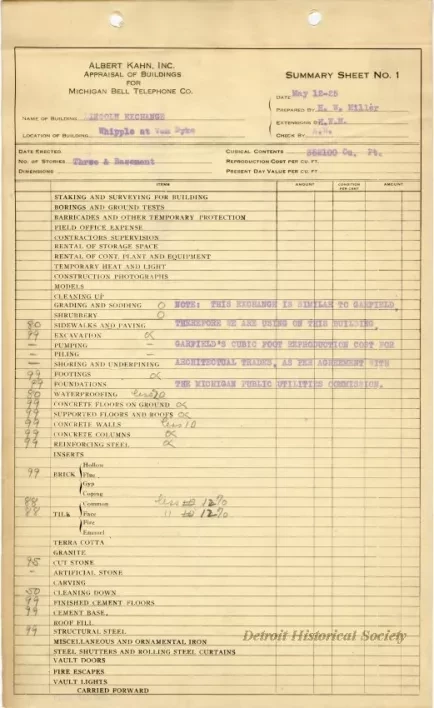 ALBERT KAHN, INC.
APPRAISAL OF BUILDINGS
FOR
MICHIGAN BELL TELEPHONE CO.
SUMMARY SHEET NO. 1
DATE May 12-25
PREPARED BY H. W. Miller
NAME OF BUILDING LINCOLN EXCHANGE
EXTENSIONS BY H.W.M.
LOCATION OF BUILDING Whipple at Van Dyke
CHECK BY
DATE ERECTED
CUBICAL CONTENTS 562100 Cu. Ft.
NO. OF STORIES Three & Basement
REPRODUCTION COST PER CU. FT.
DIMENSIONS
PRESENT DAY VALUE PER CU. FT.
ITEMS AMOUNT CONDITION PER CENT AMOUNT
STAKING AND SURVEYING FOR BUILDING
BORINGS AND GROUND TESTS
BARRICADES AND OTHER TEMPORARY PROTECTION
FIELD OFFICE EXPENSE
CONTRACTORS SUPERVISION
RENTAL OF STORAGE SPACE
RENTAL OF CONT. PLANT AND EQUIPMENT
TEMPORARY HEAT AND LIGHT
CONSTRUCTION PHOTOGRAPHS
MODELS
CLEANING UP
GRADING AND SODDING O NOTE: THIS EXCHANGE IS SIMILAR TO GARFIELD,
SHRUBBERY O
80 SIDEWALKS AND PAVING THEREFORE WE ARE USING ON THIS BUILDING,
99 EXCAVATION OK
— PUMPING — GARFIELD'S CUBIC FOOT REPRODUCTION COST FOR
— PILING —
— SHORING AND UNDERPINING ARCHITECTUAL TRADES, AS PER AGREEMENT WITH
99 FOOTINGS OK
89 FOUNDATIONS THE MICHIGAN PUBLIC UTILITIES COMMISSION.
80 WATERPROOFING less 20
99 CONCRETE FLOORS ON GROUND OK
99 SUPPORTED FLOORS AND ROOFS OK
99 CONCRETE WALLS less 10
99 CONCRETE COLUMNS OK
99 REINFORCING STEEL OK
INSERTS
Hollow
99 BRICK Flue
Gyp
Coping
88 Common less 12%
88 TILE Face 11 12%
Fire
Enamel
TERRA COTTA
GRANITE
95 CUT STONE
— ARTIFICIAL STONE
CARVING
50 CLEANING DOWN
99 FINISHED CEMENT FLOORS
99 CEMENT BASE,
ROOF FILL
99 STRUCTURAL STEEL
MISCELLANEOUS AND ORNAMENTAL IRON
STEEL SHUTTERS AND ROLLING STEEL CURTAINS
VAULT DOORS
FIRE ESCAPES
VAULT LIGHTS
CARRIED FORWARD
Detroit Historical Society